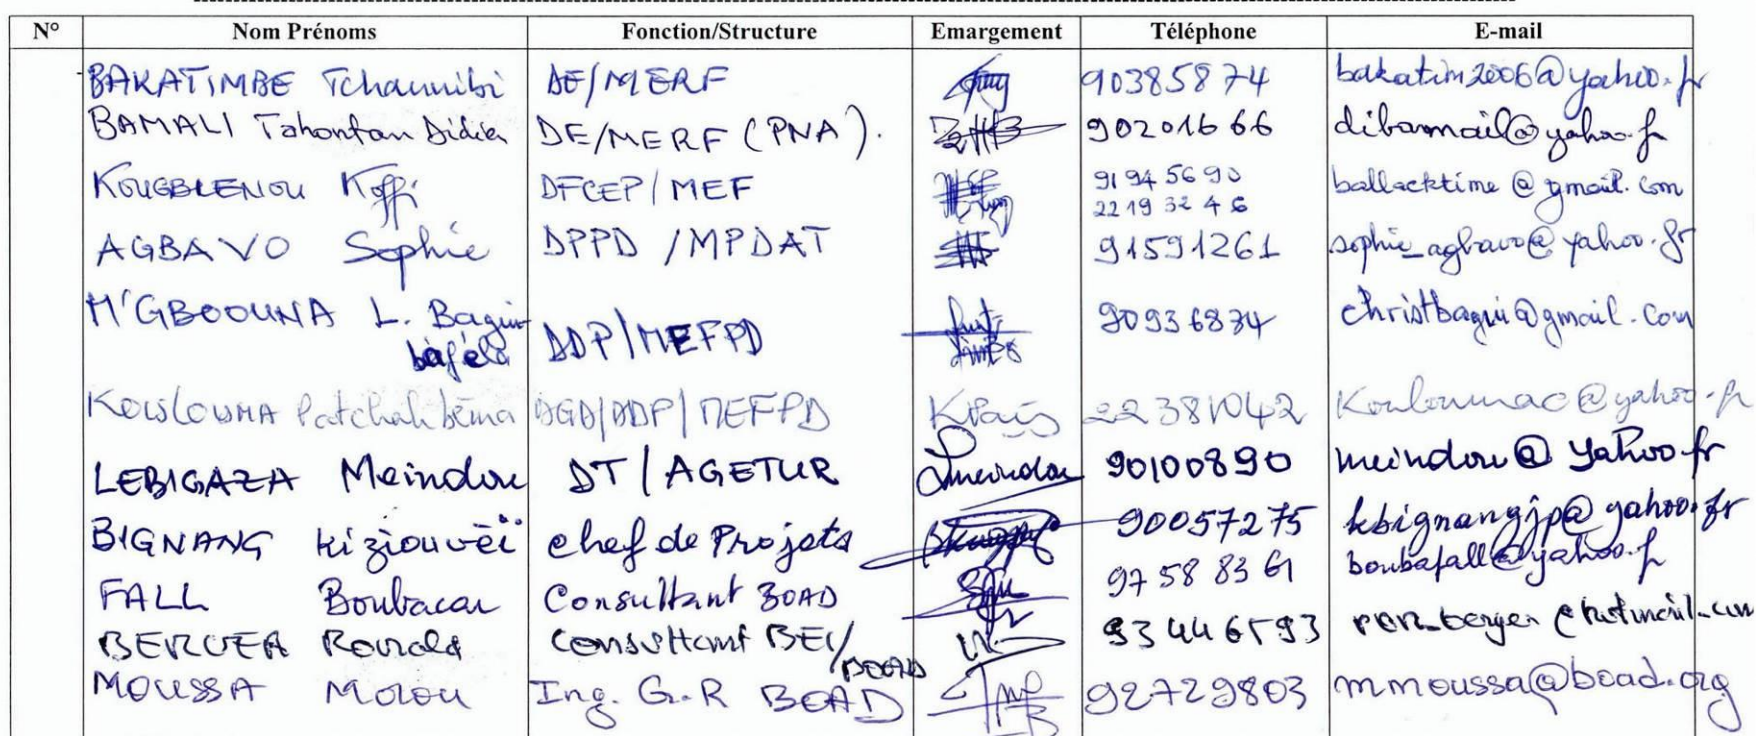 N° Nom Prénoms Fonction/Structure Emargement Téléphone E-mail
BAKATIMBE Tchannibi DE/MERF 90385874 bakatim2006@yahoo.fr
BAMALI Tahontan Didier DE/MERF (PNA). 90201666 dibamail@yahoo.fr
KOUGBLENOU Koffi DFCEP/MEF 91945690 22193246 ballacktime@gmail.com
AGBAVO Sophie DPPD/MPDAT 91591261 sophie_agbavo@yahoo.fr
M'GBOOUNA L. Bagui- DDP/MEFPD 90936834 christbagui@gmail.com
bàfèlé
KOULOUMA Patchalibèma DGD/DDP/MEFPD 22381042 Kouloumac@yahoo.fr
LEBIGAZA Meindou DT/AGETUR 90100890 meindou@yahoo.fr
BIGNANG Kiziouvèï chef de Projets 90057275 kbignangjp@yahoo.fr
FALL Boubacar Consultant BOAD 97588361 boubafall@yahoo.fr
Consultant BEI/ 93446593
BOAD
MOUSSA Molou Ing. G.R BOAD 92729803 mmoussa@boad.org